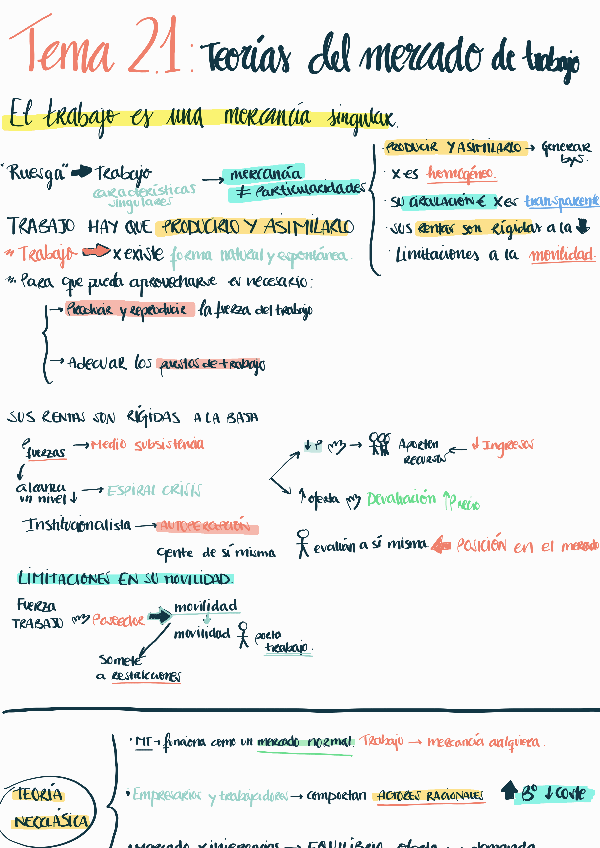 Tema 2.1: Teorías del mercado de trabajo
El trabajo es una mercancía singular.
"Ruesga" → Trabajo → mercancía
características singulares
≠ Particularidades
PRODUCIR Y ASIMILARLO → Generar
· X es homogéneo.
· SU CIRCULACIÓN € X es transparente
· SUS Rentas son Rígidas a la ↓
· Limitaciones a la movilidad.
TRABAJO HAY QUE PRODUCIRLO Y ASIMILARLO
" Trabajo → x existe forma natural y espontánea.
" Para que pueda aprovecharse es necesario:
→ Producir y reproducir la fuerza del trabajo
→ Adecuar los puestos de trabajo
SUS RENTAS SON RÍGIDAS A LA BAJA
P fuerzas → Medio subsistencia
alcanza un nivel ↓ → ESPIRAL CRISIS
↓ P → Aportan recursos ← ↓ Ingresos
↑ oferta Devaluación ↑ Precio
Institucionalista → AUTOPERCEPCIÓN
Gente de sí misma
evalúan a sí misma ← POSICIÓN en el mercado
LIMITACIONES EN SU MOVILIDAD
FUERZA TRABAJO Poseedor → movilidad
↓
movilidad porta trabajo.
Somete a restricciones
TEORÍA NEOCLÁSICA
· MT → funciona como un mercado normal. Trabajo → mercancía cualquiera.
· Empresarios y trabajadores → comportan ACTORES RACIONALES ↑ Bº ↓ Coste
EQUILIBRIO oferta demanda